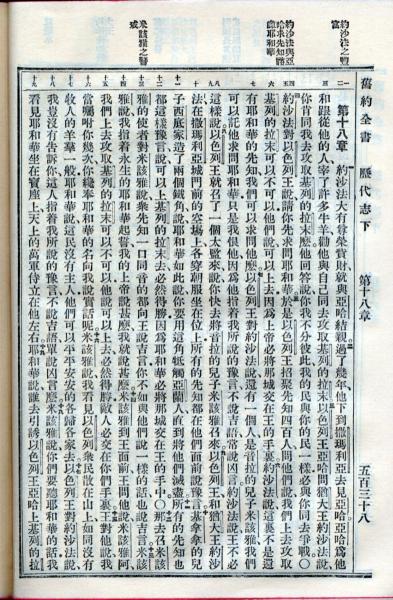 舊約全書 歷代志下 第十八章 五百三十八
約沙法之豐富
約沙法與亞哈求先知語耶和華
米該雅之警戒
第十八章 約沙法大有尊榮貲財就與亞哈結親過了幾年他下到撒瑪利亞去見亞哈亞哈為他
和跟從他的人宰了許多牛羊勸他與自己同去攻取基列的拉末以色列王亞哈問猶大王約沙法說
你肯同我去攻取基列的拉末麼他回答說你我不分彼此我的民與你的民一樣必與你同去爭戰〇
約沙法對以色列王說請你先求問耶和華於是以色列王招聚先知四百人問他們說我們上去攻取
基列的拉末可以不可以他們說可以上去因為上帝必將那城交在王的手裏約沙法說這裏不是還
有耶和華的先知我們可以求問他麼以色列王對約沙法說還有一個人是音拉的兒子米該雅我們
可以託他求問耶和華只是我恨他因為他指着我所說的豫言不說吉語常說凶言約沙法說王不必
這樣說以色列王就召了一個太監來說你快去將音拉的兒子米該雅召來以色列王和猶大王約沙
法在撒瑪利亞城門前的空場上各穿朝服坐在位上所有的先知都在他們面前說豫言基拿拿的兒
子西底家造了兩個鐵角說耶和華如此說你要用這角牴觸亞蘭人直到將他們滅盡所有的先知也
都這樣豫言說可以上基列的拉末去必然得勝因為耶和華必將那城交在王的手中〇那去召米該
雅的使者對米該雅說衆先知一口同音的都向王說吉言你不如與他們說一樣的話也說吉言米該
雅說我指着永生的耶和華起誓我的上帝說甚麼我就說甚麼米該雅到王面前王問他說米該雅阿
我們上去攻取基列的拉末可以不可以他說可以上去必然得勝敵人必交在你們手裏王對他說我
當囑咐你幾次你纔奉耶和華的名向我說實話呢米該雅說我看見以色列衆民散在山上如同沒有
牧人的羊羣一般耶和華說這民沒有主人他們可以平平安安的各歸各家去以色列王對約沙法說
我豈沒有告訴你這人指着我所說的豫言不說吉語單說凶言麼米該雅說你們要聽耶和華的話我
看見耶和華坐在寶座上天上的萬軍侍立在他左右耶和華說誰去引誘以色列王亞哈上基列的拉